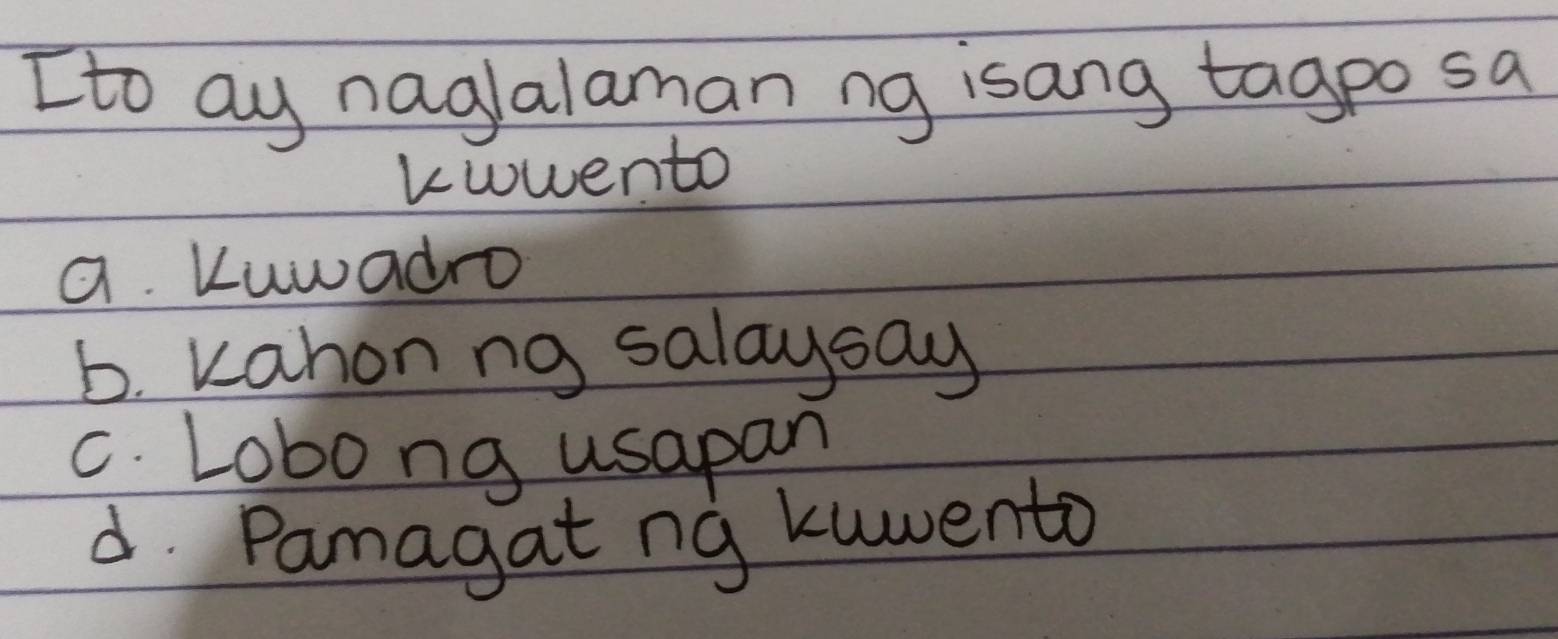 Ito ay naglalaman ng isang tagpo sa
kuwento
a. Kuwadro
b. Kahon ng salaysay
c. Lobo ng usapan
d. Pamagat ng kuwento